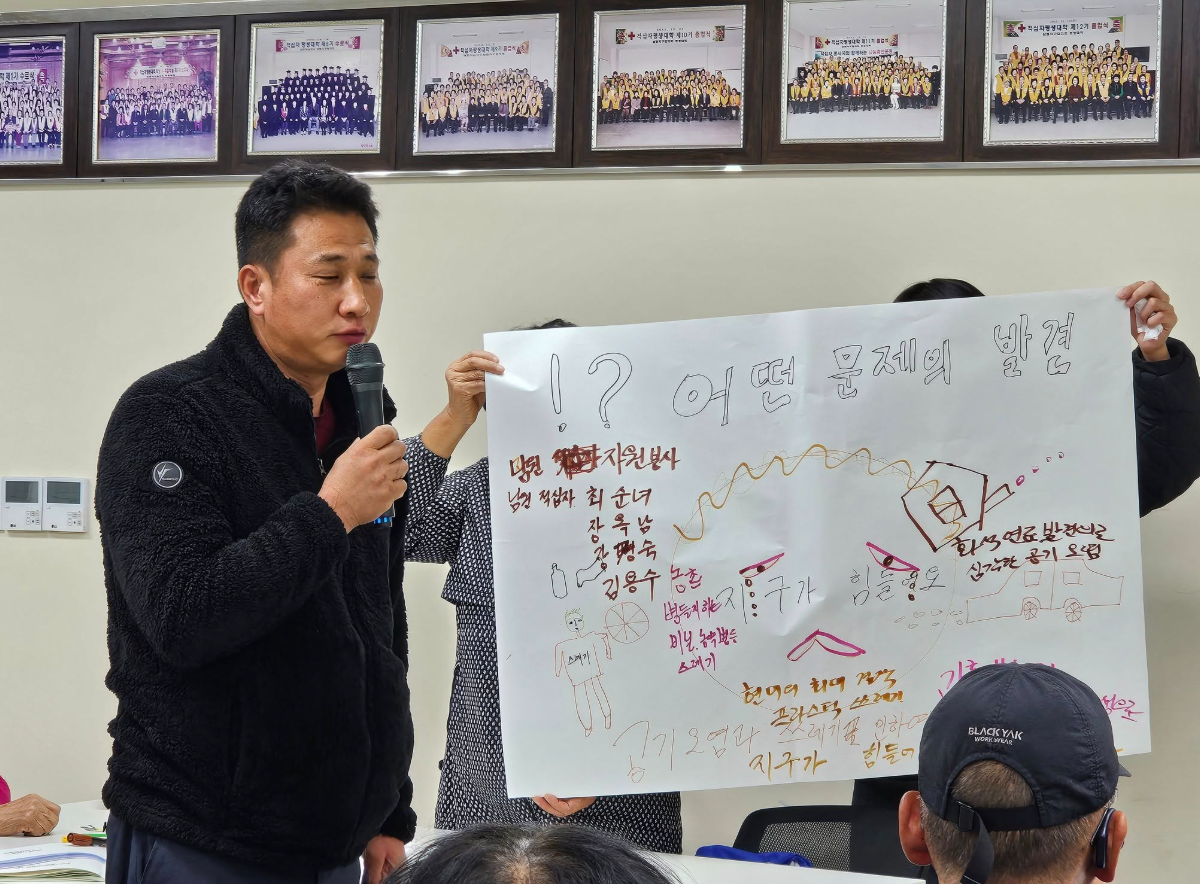 적십자평생대학 제10기 졸업식
적십자평생대학 제11기 졸업식
적십자평생대학 제12기 졸업식
!? 어떤 문제의 발견
남원 자원봉사
남원 적십자 최순녀
장옥남
김용수
농촌
병들게 하는
비닐, 농약병등
쓰레기
쓰레기
지구가 힘들어요
화석연료 발전으로
심각한 공기 오염
현대의 최대 강적
프라스틱 쓰레기
공기오염과 쓰레기로 인하여
지구가 힘들어
BLACKYAK
WORK WEAR